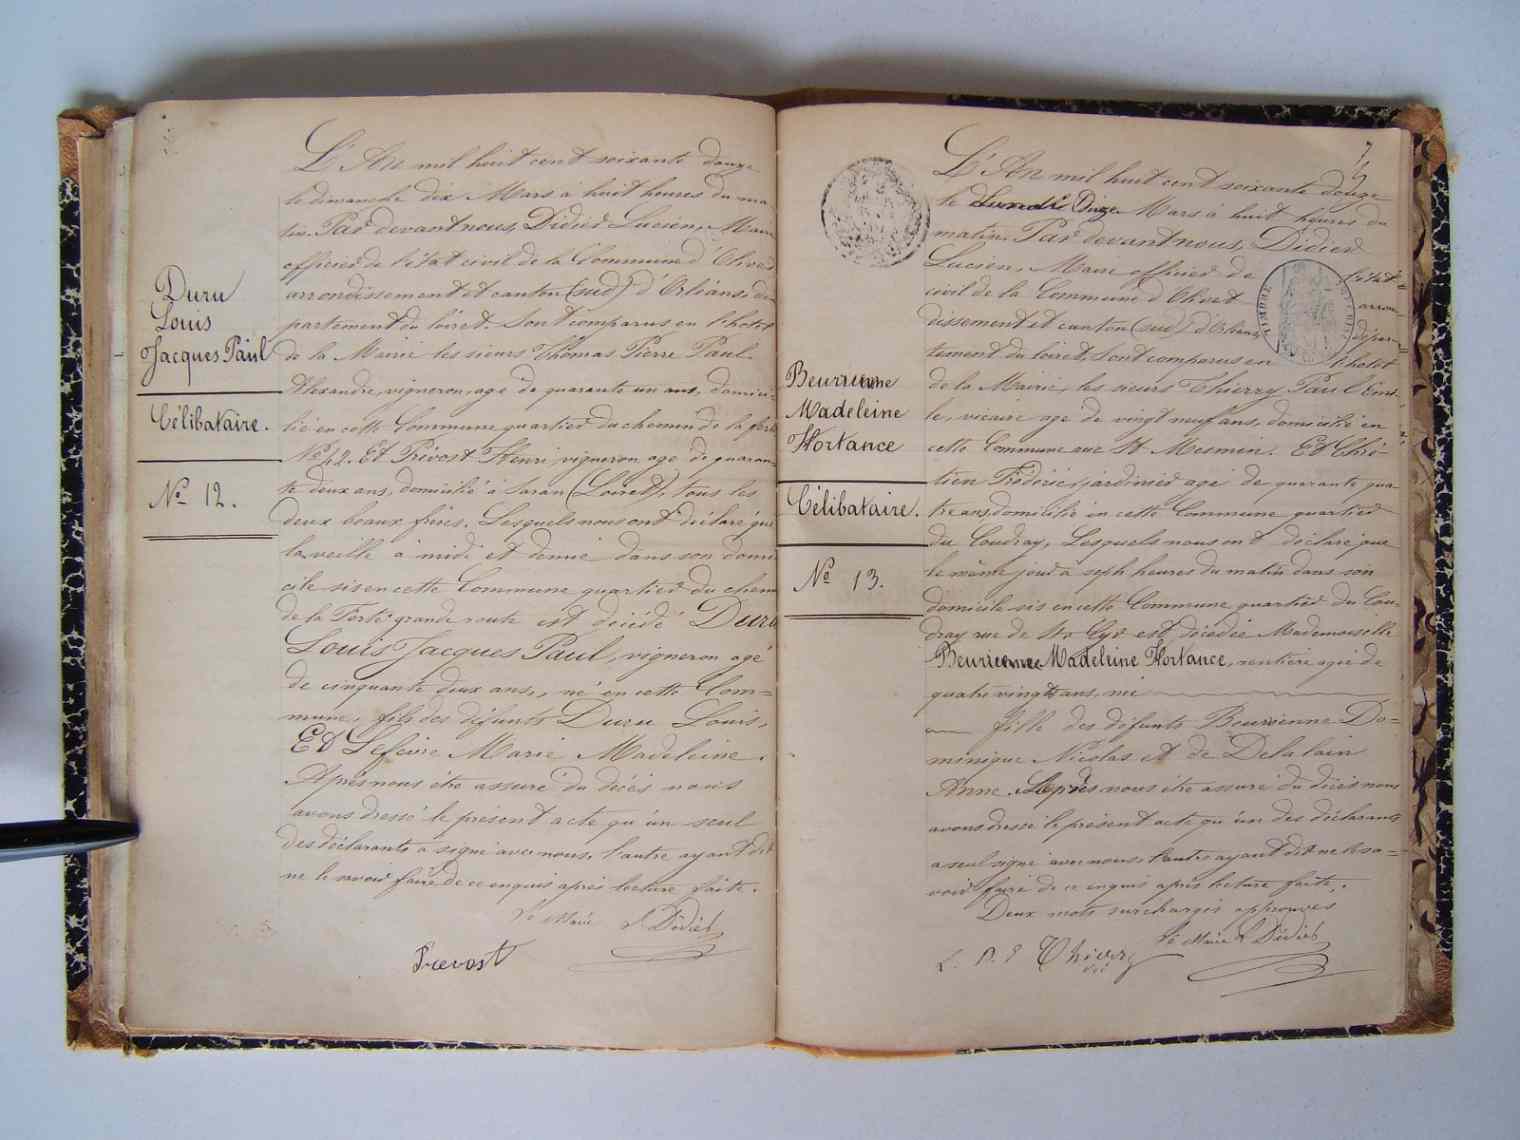 Duru
Louis
Jacques Paul
Célibataire.
No 12.
L'An mil huit cent soixante douze
le dimanche dix Mars à huit heures du ma
tin. Par devant nous, Didier Lucien, Maire
officier de l'état civil de la Commune d'Olivet
arrondissement et canton (sud) d'Orléans dé
partement du Loiret. Sont comparus en l'hotel
de la Mairie les sieurs Thomas Pierre Paul
Alexandre, vigneron, age de quarante un ans, domici-
lié en cette Commune quartier du chemin de la ferté
No 42. Et Prévost Henri vigneron age de quaran
te deux ans, domicilié à Saran (Loiret), tous les
deux beaux frères. Lesquels nous ont déclaré que
la veille à midi et demie dans son domi
cile sis en cette Commune quartier du chemin
de la Ferté grande route est décédé Duru
Louis Jacques Paul, vigneron agé
de cinquante deux ans, né en cette Com=
mune, fils des défunts Duru Louis,
Et Lefevre Marie Madeleine.
Après nous être assuré du décès nous
avons dressé le présent acte qu'un seul
des déclarants a signé avec nous, l'autre ayant dit
ne le savoir faire de ce enquis après lecture faite.
Le Maire L Didier
Prevost
Beurienne
Madeleine
Hortance
Célibataire.
No 13.
L'An mil huit cent soixante douze
le Lundi Onze Mars à huit heures du
matin. Par devant nous, Didier
Lucien, Maire officier de l'état
civil de la Commune d'Olivet arron=
dissement et canton (sud) d'Orléans, dépar=
tement du Loiret, Sont comparus en l'hotel
de la Mairie, les sieurs Thierry Paul Emi-
le, vicaire age de vingt neuf ans, domicilié en
cette Commune rue St Mesmin. Et Chré-
tien Fréderic, jardinier agé de quarante qua
tre ans, domicilié en cette Commune quartier
du Coudray, Lesquels nous ont déclaré que
le même jour à sept heures du matin dans son
domicile sis en cette Commune quartier du Cou
dray rue de St Cyr est décédée Mademoiselle
Beurienne Madeleine Hortance, rentière agée de
quatre vingts ans, née
fille des défunts Beurienne Do=
minique Nicolas et de Delalain
Anne. Après nous être assuré du décès nous
avons dressé le présent acte qu'un des déclarants
a seul signé avec nous, l'autre ayant dit ne le sa=
voir faire de ce enquis après lecture faite.
Deux mots surchargés approuvés
Le Maire L Didier
L. P. E Thierry
vic
TIMBRE